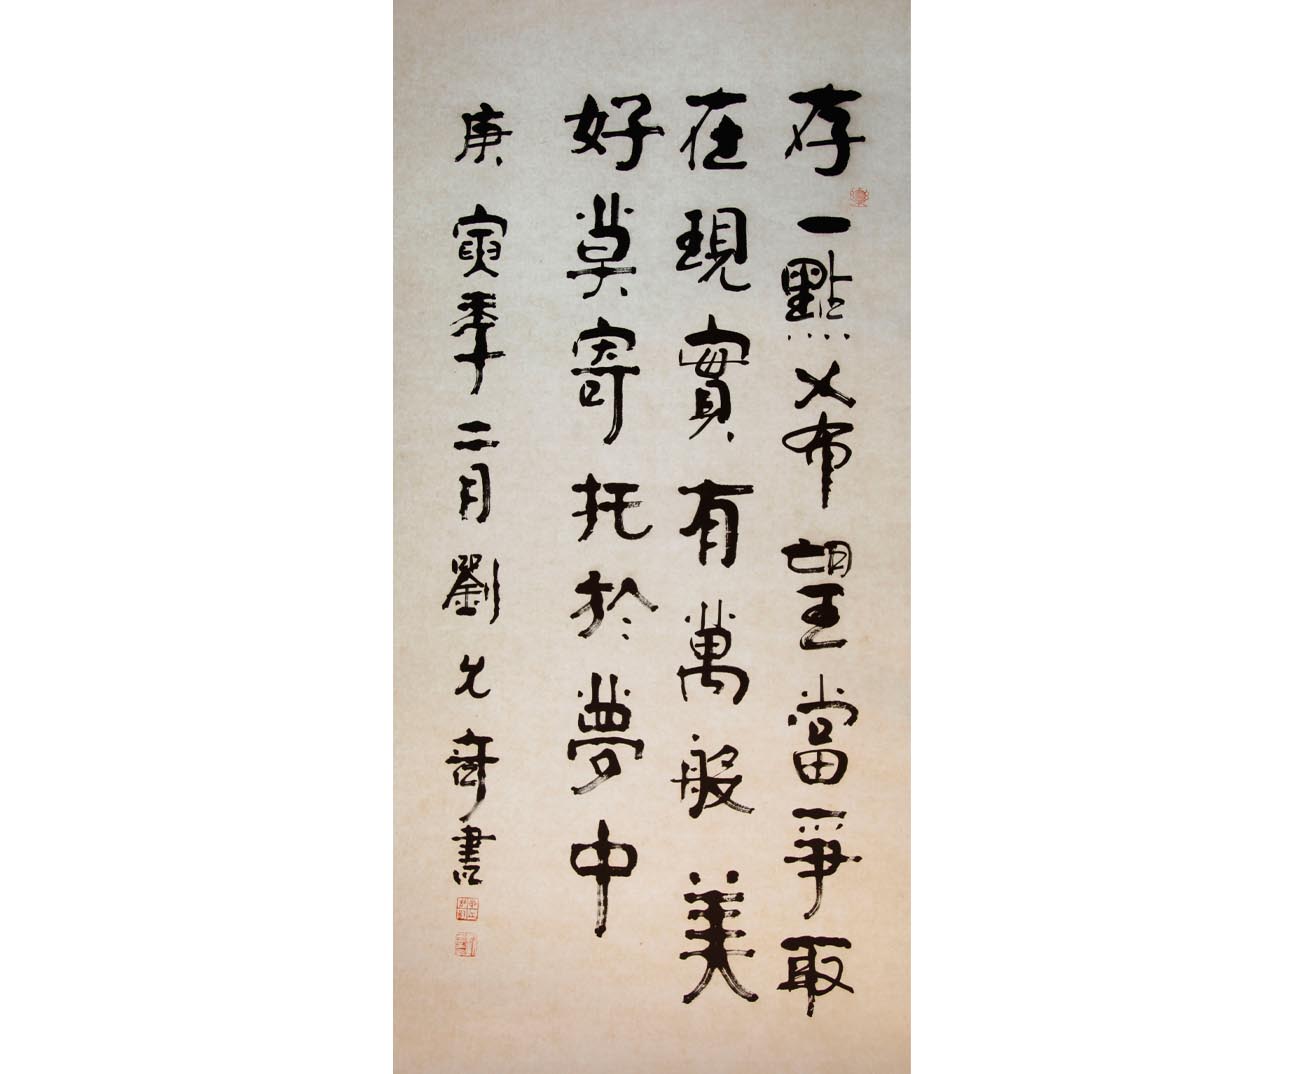 存一點希望當爭取
在現實有萬般美
好莫寄托於夢中
庚寅季十二月劉允奇書